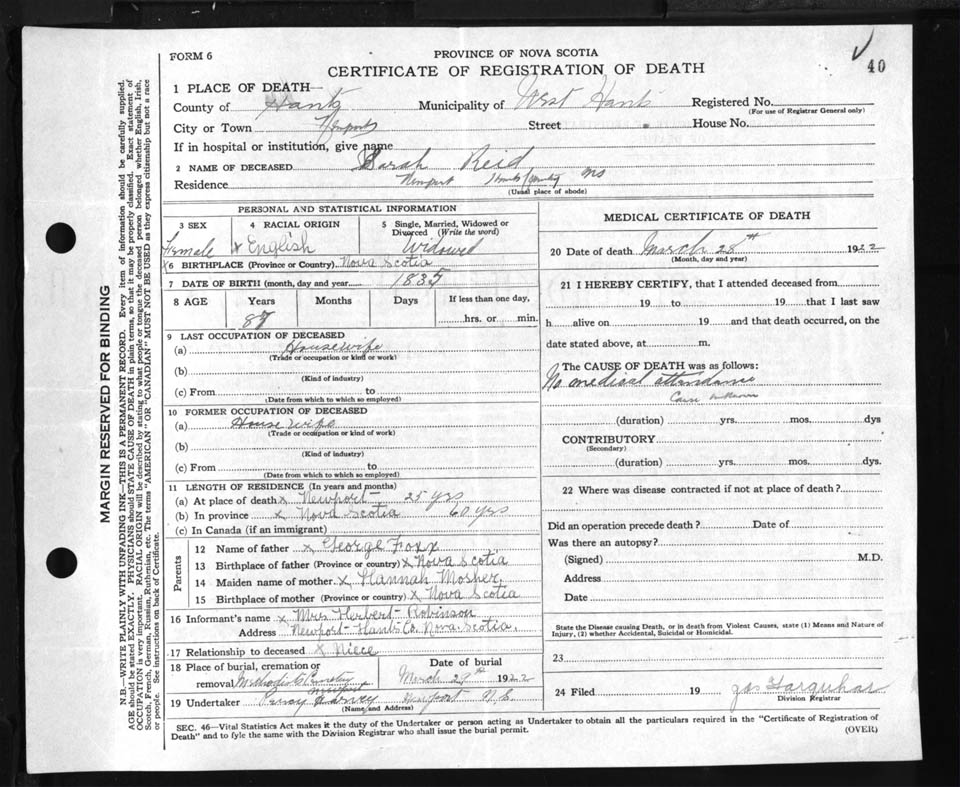 40
FORM 6
PROVINCE OF NOVA SCOTIA
CERTIFICATE OF REGISTRATION OF DEATH
1 PLACE OF DEATH—
County of Hants Municipality of West Hants Registered No.
(For use of Registrar General only)
City or Town Newport Street House No.
If in hospital or institution, give name
2 NAME OF DECEASED Sarah Reid
Residence Newport Hants County NS
(Usual place of abode)
PERSONAL AND STATISTICAL INFORMATION
3 SEX 4 RACIAL ORIGIN 5 Single, Married, Widowed or Divorced (Write the word)
Female x English Widowed
x6 BIRTHPLACE (Province or Country) Nova Scotia
7 DATE OF BIRTH (month, day and year) 1835
8 AGE Years Months Days If less than one day,
87 hrs. or min.
9 LAST OCCUPATION OF DECEASED
(a) Housewife
(Trade or occupation or kind or work)
(b)
(Kind of industry)
(c) From to
(Date from which to which so employed)
10 FORMER OCCUPATION OF DECEASED
(a) House wife
(Trade or occupation or kind of work)
(b)
(Kind of industry)
(c) From to
(Date from which to which so employed)
11 LENGTH OF RESIDENCE (In years and months)
(a) At place of death x Newport 25 yrs
(b) In province x Nova Scotia 60 yrs
(c) In Canada (if an immigrant)
Parents
12 Name of father x George Foxx
13 Birthplace of father (Province or country) x Nova Scotia
14 Maiden name of mother x Hannah Mosher
15 Birthplace of mother (Province or country) x Nova Scotia
16 Informant's name x Mrs Herbert Robinson
Address Newport Hants Co. Nova Scotia.
17 Relationship to deceased x Niece
18 Place of burial, cremation or Date of burial
removal Methodist Cemetery Newport March 29th 1922
19 Undertaker Harvey Newport N.S.
(Name and Address)
MEDICAL CERTIFICATE OF DEATH
20 Date of death March 28th 1922
(Month, day and year)
21 I HEREBY CERTIFY, that I attended deceased from
19 to 19 that I last saw
h alive on 19 and that death occurred, on the
date stated above, at m.
The CAUSE OF DEATH was as follows:
No medical attendance
(duration) yrs. mos. dys
CONTRIBUTORY
(Secondary)
(duration) yrs. mos. dys.
22 Where was disease contracted if not at place of death?
Did an operation precede death? Date of
Was there an autopsy?
(Signed) M.D.
Address
Date
State the Disease causing Death, or in death from Violent Causes, state (1) Means and Nature of
Injury, (2) whether Accidental, Suicidal or Homicidal.
23
24 Filed 19 Jas Farquhar
Division Registrar
SEC. 46—Vital Statistics Act makes it the duty of the Undertaker or person acting as Undertaker to obtain all the particulars required in the "Certificate of Registration of
Death" and to fyle the same with the Division Registrar who shall issue the burial permit.
(OVER)
MARGIN RESERVED FOR BINDING
N.B.—WRITE PLAINLY WITH UNFADING INK—THIS IS A PERMANENT RECORD. Every item of information should be carefully supplied.
AGE should be stated EXACTLY. PHYSICIANS should STATE CAUSE OF DEATH in plain terms, so that it may be properly classified. Exact statement of
OCCUPATION is very important. RACIAL ORIGIN will be described by stating to what people or tongue the deceased person belonged whether English, Irish,
Scotch, French, German, Russian, Ruthenian, etc. The terms "AMERICAN" OR "CANADIAN" MUST NOT BE USED as they express citizenship but not a race
or people. See instructions on back of Certificate.